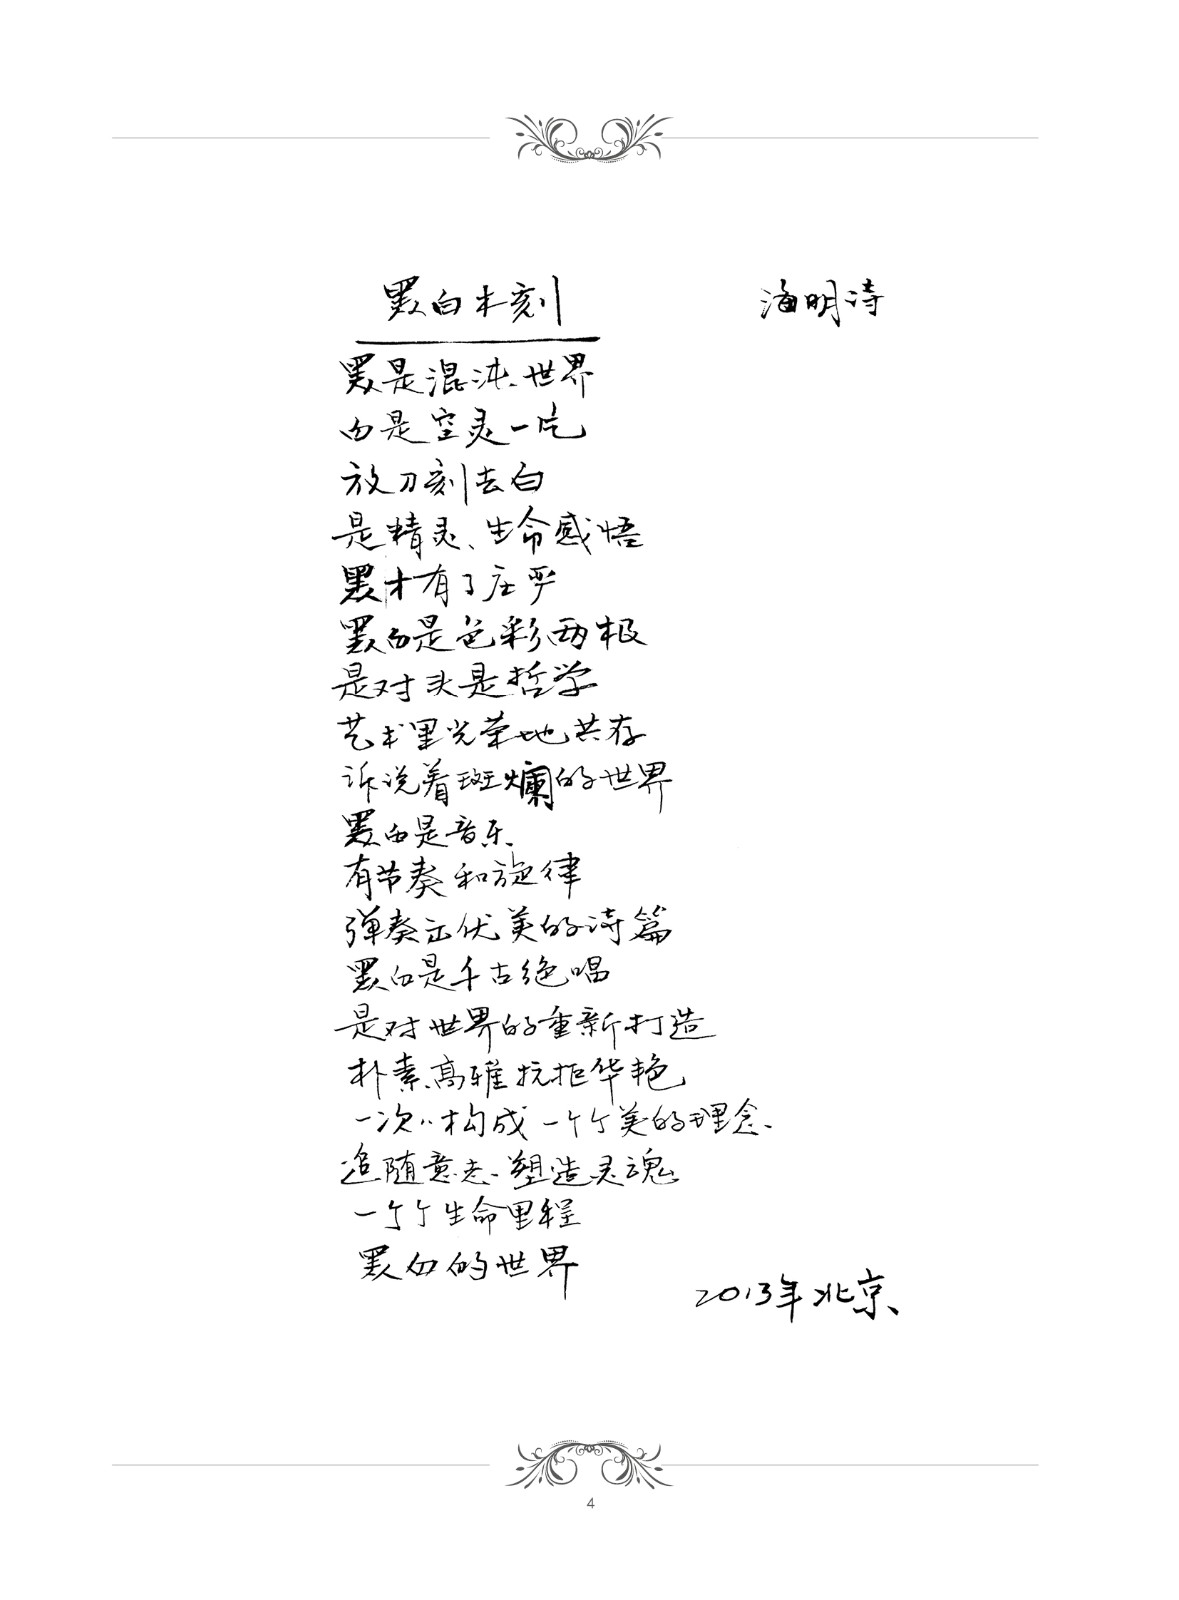 黑白木刻
海明诗
黑是混沌、世界
白是空灵一片
放刀刻去白
是精灵、生命感悟
黑才有了庄严
黑白是色彩两极
是对头是哲学
艺术里光荣地共存
诉说着斑斓的世界
黑白是音乐
有节奏和旋律
弹奏出优美的诗篇
黑白是千古绝唱
是对世界的重新打造
朴素、高雅抗拒华艳
一次次构成一个个美的理念、
追随意志、塑造灵魂
一个个生命里程
黑白的世界
2013年北京、
4